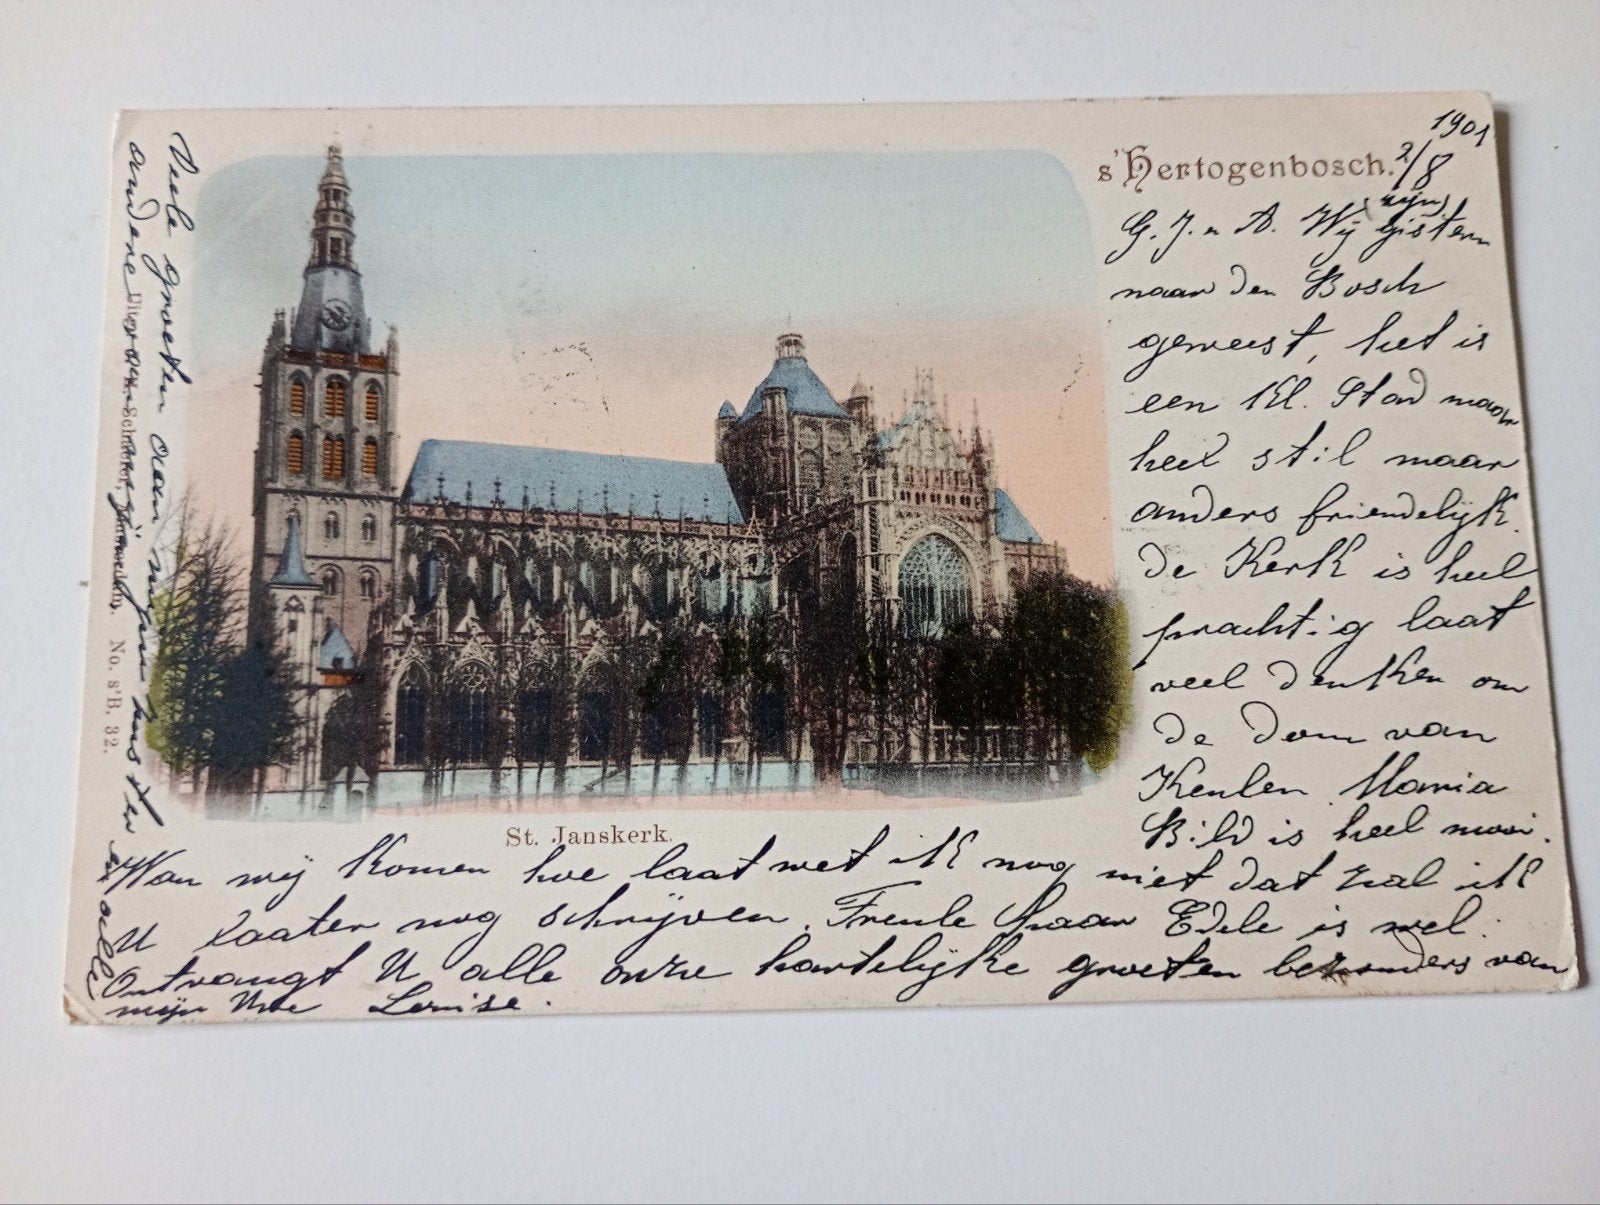 1901
2/8
s'Hertogenbosch.
(zijn)
G. J. en A. Wij gistern
naar den Bosch
geweest, het is
een Kl. Stad maar
heel stil maar
anders friendelijk.
de Kerk is heel
prachtig laat
veel denken om
de Dom van
Keulen. Maria
Bild is heel mooi.
Wan wij komen hoe laat weet ik nog niet dat zal ik
U laater nog schrijven. Freule haar Edele is wel.
Ontvangt U alle onze hartelijke groeten bezonders van
mijn Uwe Louise.
Veele groeten aan mijn zuster en alle
andere
St. Janskerk.
No. s'B. 32.